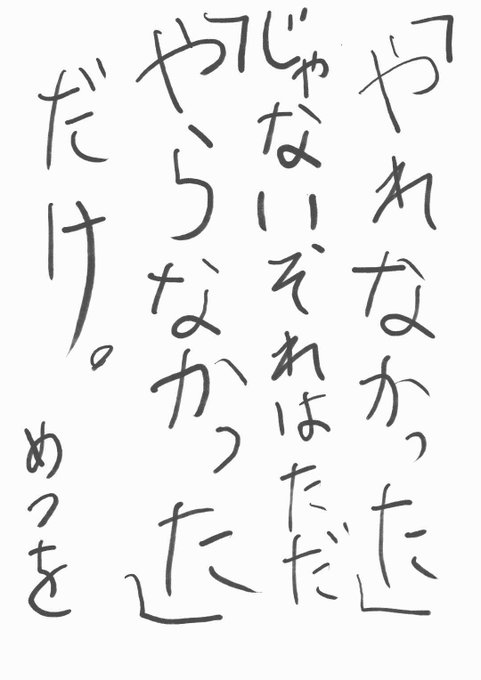 「やれなかった」
じゃないぞれはただ
「やらなかった」
だけ。
めつを